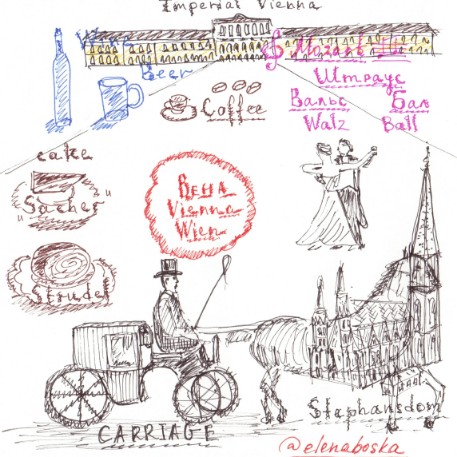 Imperial Vienna
Mozart
Beer
Штраус
Coffee
Вальс Бал
Walz Ball
cake
"Sacher"
Вена
Vienna
Wien
Strudel
Stephansdom
CARRIAGE
@elenaboska